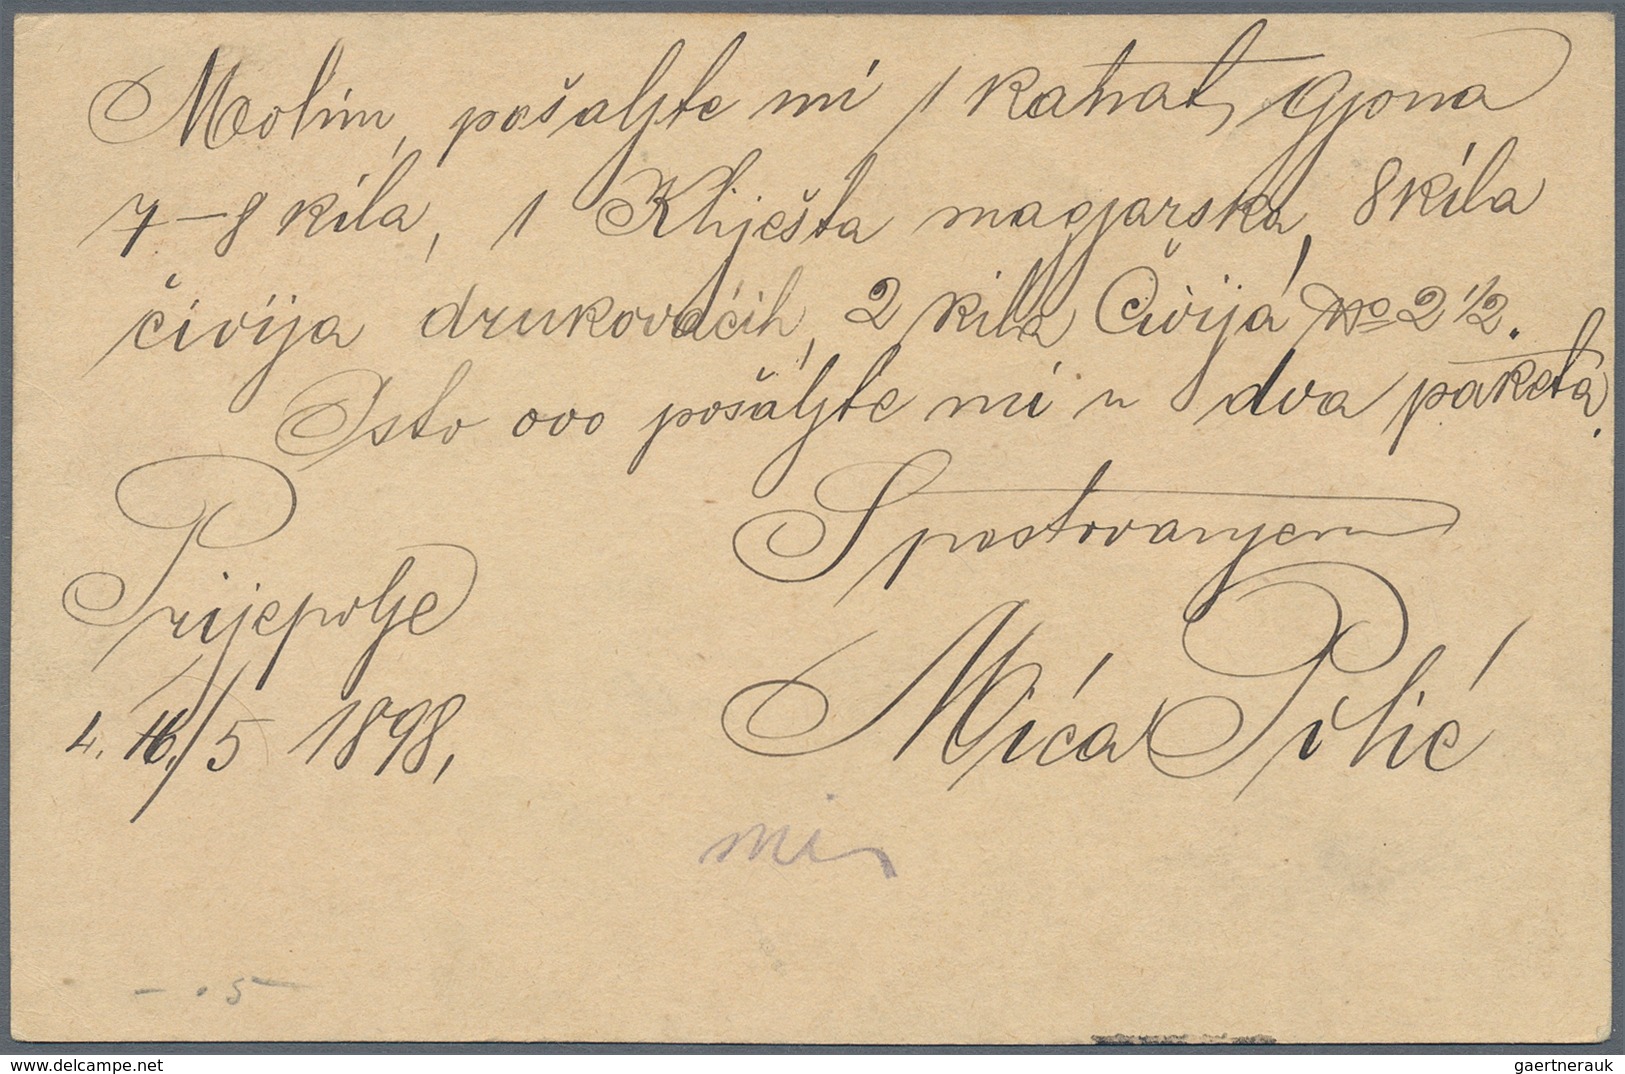 Molim, pošaljte mi 1 kanat gjona
7–8 kila, 1 Kliješta magjarska, 8 kila
čivija drukovaćih, 2 kila Čivijá No 2 1/2.
Isto ovo pošaljte mi u dva paketa.
S poštovanjem
Prijepolje
4. 16/5 1898,
Mića Pilić
- . 5 -
gaertnerauk @ delcampe.net